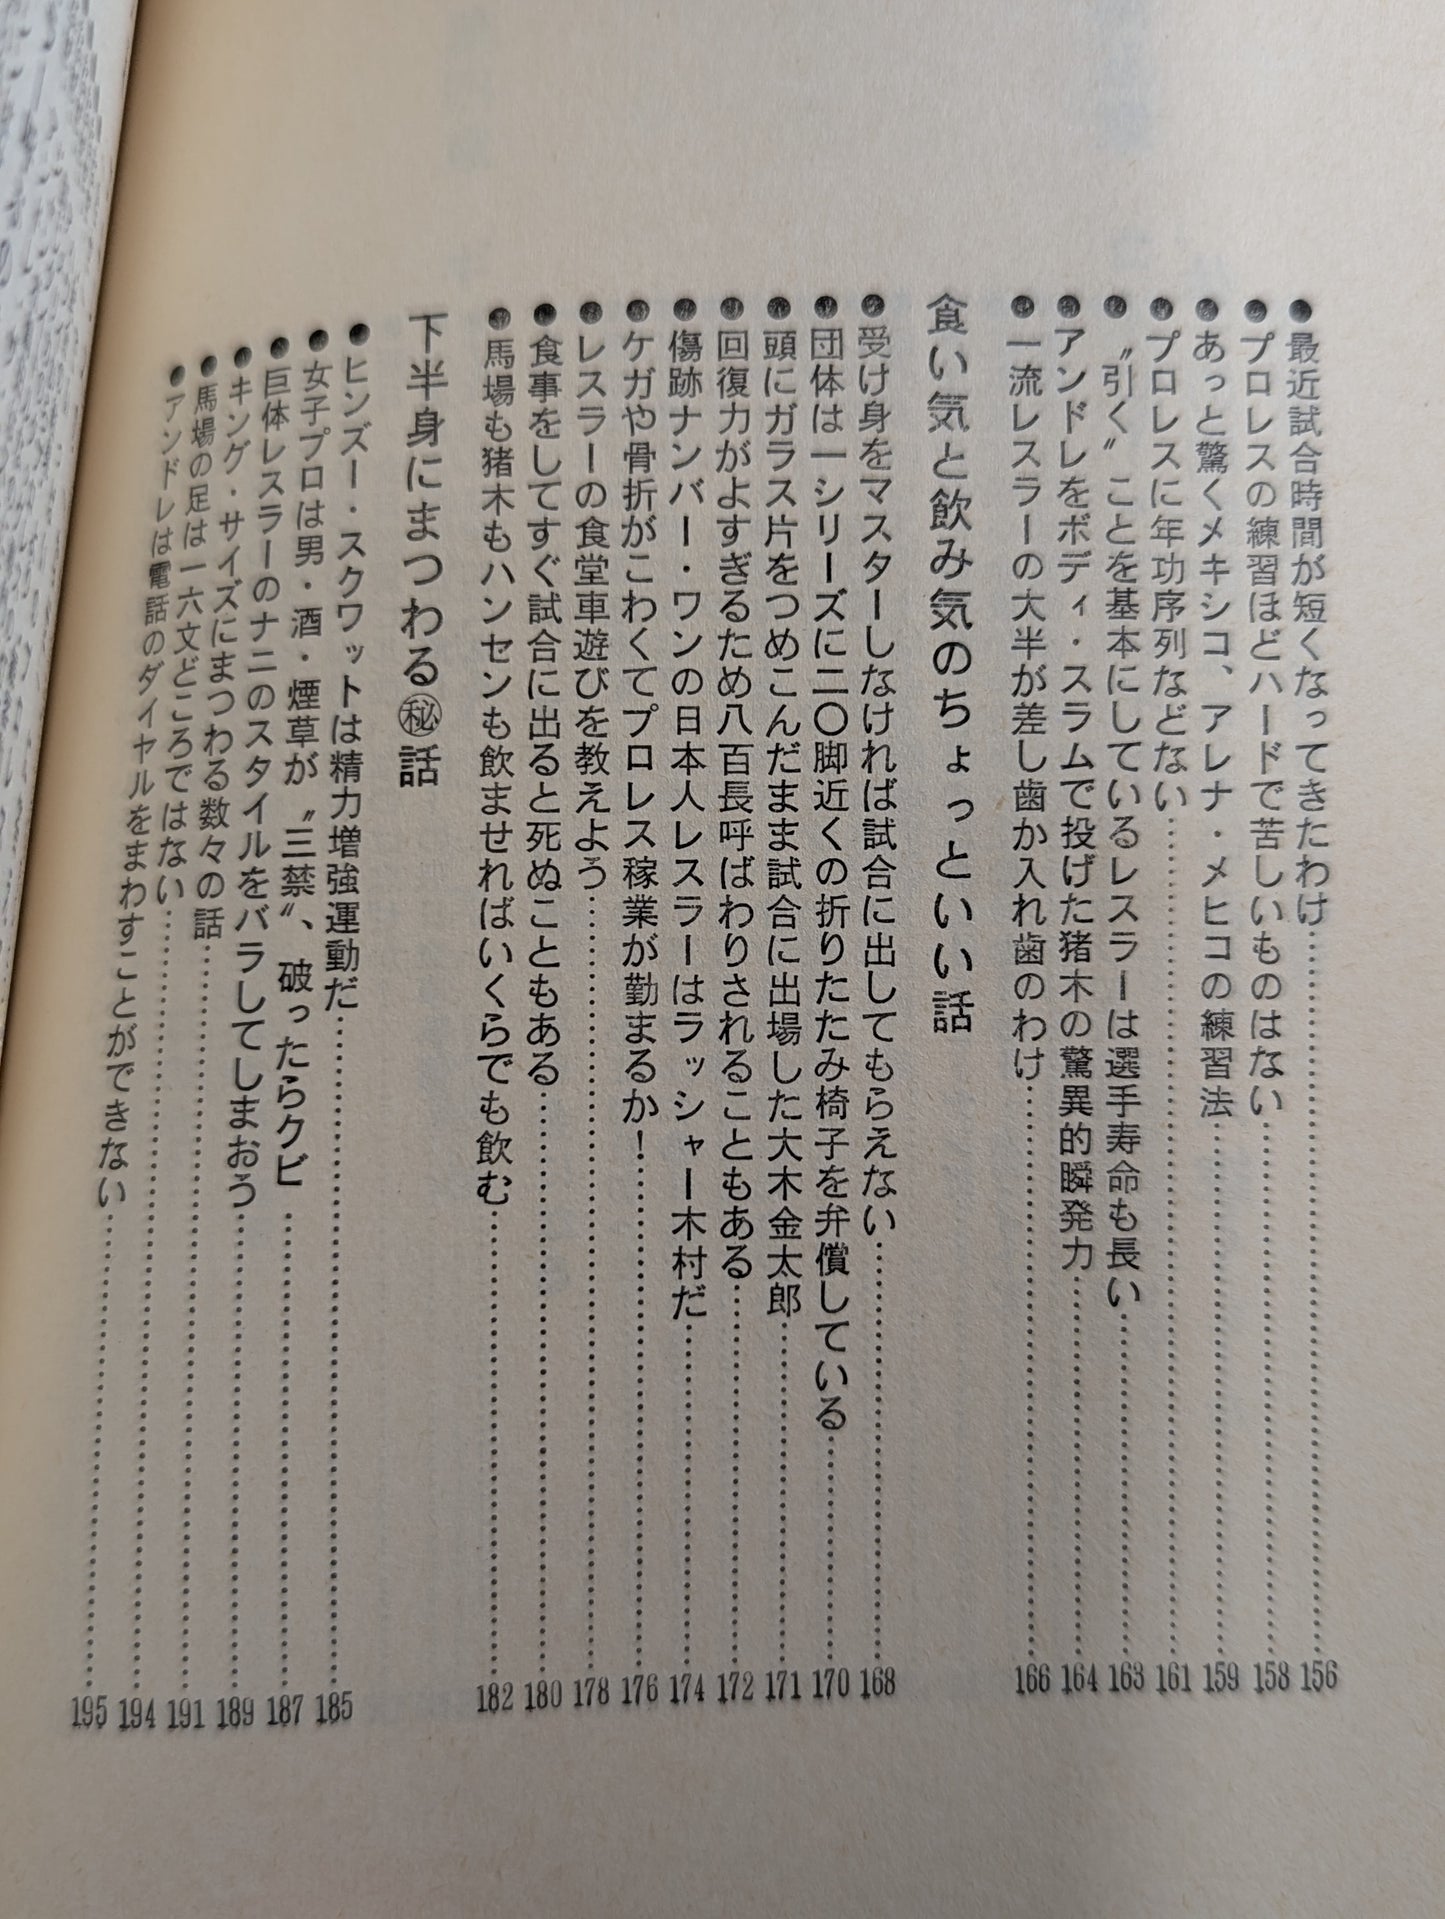 ●最近試合時間が短くなってきたわけ……156
●プロレスの練習ほどハードで苦しいものはない……158
●あっと驚くメキシコ、アレナ・メヒコの練習法……159
●プロレスに年功序列などない……161
●〝引く〟ことを基本にしているレスラーは選手寿命も長い……163
●アンドレをボディ・スラムで投げた猪木の驚異的瞬発力……164
●一流レスラーの大半が差し歯か入れ歯のわけ……166
食い気と飲み気のちょっといい話
●受け身をマスターしなければ試合に出してもらえない……168
●団体は一シリーズに二〇脚近くの折りたたみ椅子を弁償している……170
●頭にガラス片をつめこんだまま試合に出場した大木金太郎……171
●回復力がよすぎるため八百長呼ばわりされることもある……172
●傷跡ナンバー・ワンの日本人レスラーはラッシャー木村だ……174
●ケガや骨折がこわくてプロレス稼業が勤まるか!……176
●レスラーの食堂車遊びを教えよう……178
●食事をしてすぐ試合に出ると死ぬこともある……180
●馬場も猪木もハンセンも飲ませればいくらでも飲む……182
下半身にまつわる㊙話
●ヒンズー・スクワットは精力増強運動だ……185
●女子プロは男・酒・煙草が〝三禁〟、破ったらクビ……187
●巨体レスラーのナニのスタイルをバラしてしまおう……189
●キング・サイズにまつわる数々の話……191
●馬場の足は一六文どころではない……194
●アンドレは電話のダイヤルをまわすことができない……195